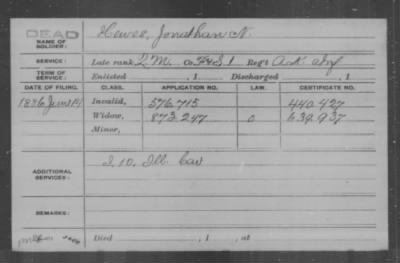 DEAD
NAME OF SOLDIER: Hewes, Jonathan N.
SERVICE: Late rank Q.M. Co. F&S 1 Reg't Ark Inf
TERM OF SERVICE: Enlisted , 1 Discharged , 1
DATE OF FILING. CLASS. APPLICATION NO. LAW. CERTIFICATE NO.
1886 June 14 Invalid, 576.715 440.427
Widow, 873.247 0 639.937
Minor,
ADDITIONAL SERVICES: I. 10. Ill. Cav
REMARKS:
Died , 1 , at